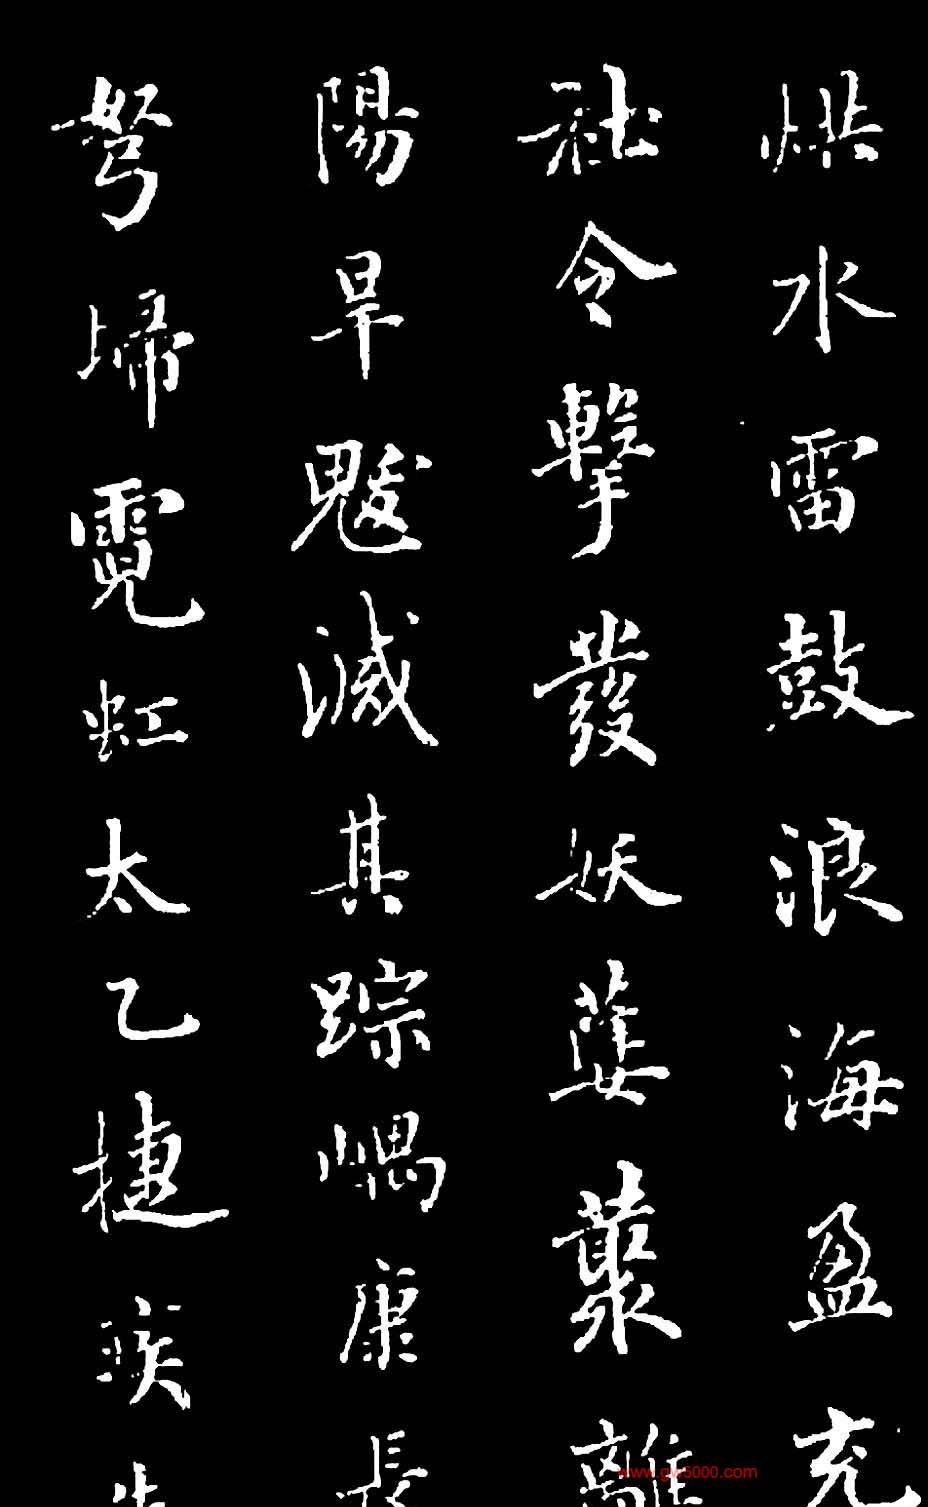 烘水雷鼓浪海盈充
社令擊發妖蔞藂離
陽旱魃滅其踪嵎康長
弩埽霓虹太乙捷疾
www.gw5000.com